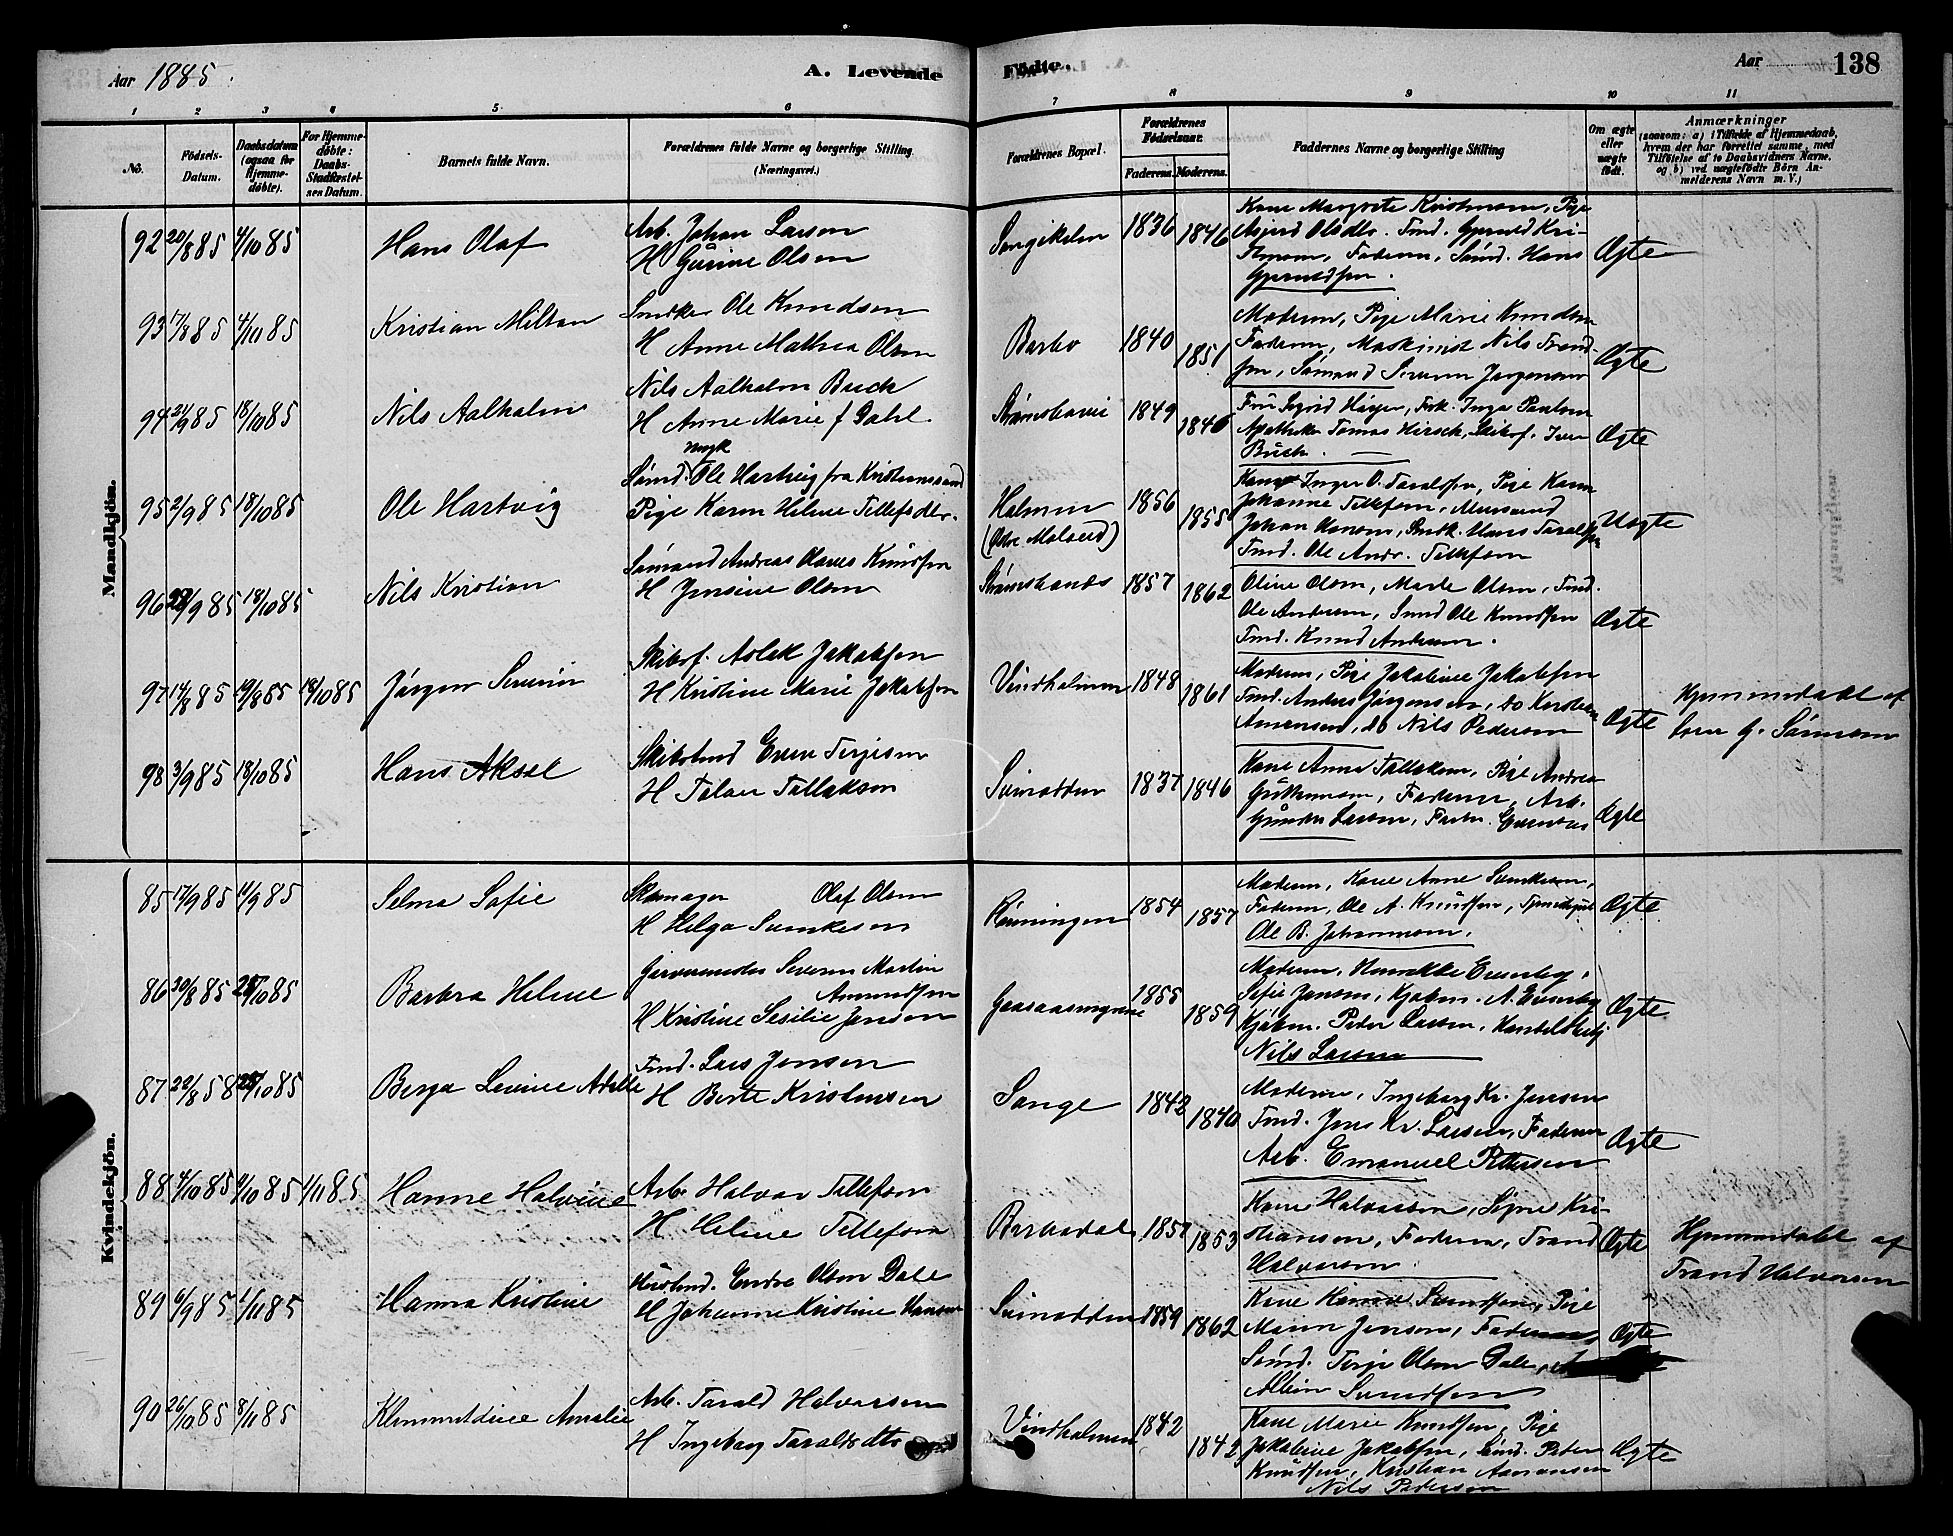 Aar 1885.
A. Levende Födte.
Aar
138
1 2 3 4 5 6 7 8 9 10 11
No.
Födsels-Datum.
Daabsdatum (ogsaa for Hjemme-döbte).
For Hjemme-döbte: Daabs-Stadfæstel-ses Datum.
Barnets fulde Navn.
Forældrenes fulde Navne og borgerlige Stilling (Næringsvei.)
Forældrenes Bopæl.
Forældrenes Födselsaar.
Faderens. Moderens.
Faddernes Navne og borgerlige Stilling
Om ægte eller uægte födt.
Anmærkninger
(saasom: a) i Tilfælde af Hjemmedaab, hvem der har forrettet samme, med Tilföielse af to Daabsvidners Navne, og b) ved uægtefödte Börn An-melderens Navn m. V.)
Mandkjön.
92 20/8 85 4/10 85 Hans Olaf
Arb. Johan Larsen
H Gurine Olsen
Songekilen 1836 1846
Kone Margrete Kristensen, Pige
Faderen, Sømd. Hans
Ægte
93 17/8 85 4/11 85 Kristian Milton
Ole Knudsen
H Anne Mathea Olsen
Barbo 1840 1851
Moderen, Pige Marie Knudsen
Faderen, Maskinist Nils Trond-
sen, Sømand Severin Jørgensen
Ægte
94 21/9 85 18/10 85 Nils Aalholm
Nils Aalholm Buch
H Anne Marie f Dahl
1849 1846
Fru Sigrid Høyer, Frk. Inga Paulsen
Apotheker Tomas Hirsch, Skibsf. Iver
Buch.
Ægte
95 2/9 85 18/10 85 Ole Hartvig
Sømd. Ole Hartvig fra Kristianssand
Pige Karen Helene Tellefsdtr.
Holmen
1856 1855
Kone Inger O. Taraldsen, Pige Karen
Johanne Tellefsen, Mursvend
Johan Hansen, Hans Taraldsen
Tmd. Ole Andr. Tellefsen
Uægte
96 23/9 85 18/10 85 Nils Kristian
Sømand Andreas Olaves Knudsen
H Jensine Olsen
1857 1862
Oline Olsen, Marte Olsen, Tmd.
Ole Andersen, Smd Ole Knudsen
Tmd. Knud Andersen.
Ægte
97 14/8 85 19/8 85 18/10 85 Jørgen Severin
Skibsf. Aslak Jakobsen
H Kristine Marie Jakobsen
Vindholmen 1848 1861
Moderen, Pige Jakobine Jakobsen
Tmd. Anders Jørgensen, do Karsten
Aanensen, do Nils Pedersen
Ægte
Hjemmedøbt af
98 3/9 85 18/10 85 Hans Aksel
Even Terjesen
H Tallaksen
Svinodden 1837 1846
Kone Anne Tallaksen, Pige Andrea
Guttormsen, Faderen, Arb.
Gunder Larsen,
Ægte
Kvindekjön.
85 17/9 85 11/9 85 Selma Sofie
Skomager Olaf Olsen
H Helga Svenkesen
1854 1857
Moderen, Kone Anne Svenkesen,
Faderen, Ole A. Knudsen,
Ole B. Johannesen.
Ægte
86 30/8 85 25/10 85 Barbra Helene
Garversvender Severin Martin
Amundsen
H Kristine Sesilie Jensen
1855 1859
Moderen, Henrikke Evensby,
Sofie Jensen, Kjøbm. A. Evensby
Kjøbm. Peder Larsen,
Nils Larsen
Ægte
87 22/8 58 25/10 85 Berga Lovise Adelle
Tmd. Lars Jensen
H Berte Kristensen
Songe 1842 1840
Moderen, Ingeborg Kr. Jensen
Tmd. Jens Kr. Larsen, Faderen
Arb. Emanuel Pettersen
Ægte
88 4/10 85 9/10 85 1/11 85 Hanne Halvine
Arb. Halvor Tellefsen
H Helene Tellefsen
Barbodal 1857 1853
Kone Halvorsen, Signe Kri-
stiansen, Faderen, Trond
Halvorsen.
Ægte
Hjemmedøbt af
Trond Halvorsen
89 6/9 85 1/11 85 Hanna Kristine
Endre Olsen Dale
H Johanne Kristine Hansen
Svinodden 1859 1862
Maren Jensen, Faderen
Sømd. Terje Olsen Dale,
Ægte
90 26/10 85 8/11 85 Klemmetdine Amalie
Arb. Tarald Halvorsen
H Ingeborg Taraldsdtr
Vindholmen 1842 1842
Kone Marie Knudsen, Pige
Jakobine Jakobsen, Sømd. Peder
Knudsen, Kristian Aanonsen
Nils Pedersen
Ægte